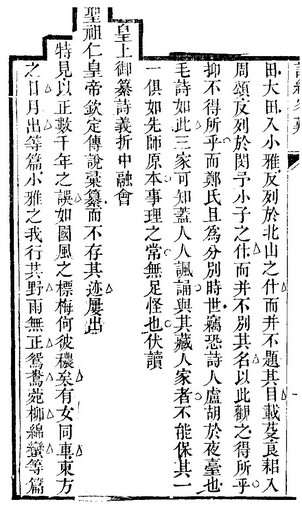 田大田入小雅反列於北山之什而并不題其目載芟良耜入
周頌反列於閔予小子之什而并不別其名以此觀之得所乎
抑不得所乎而鄭氏且為分別時世竊恐詩人盧胡於夜臺也
毛詩如此三家可知蓋人人諷誦與其藏人家者不能保其一
一俱如先師原本事理之常無足怪也伏讀
皇上御纂詩義折中融會
聖祖仁皇帝欽定傳說彙纂而不存其迹屢出
特見以正數千年之誤如國風之摽梅何彼穠矣有女同車東方
之日月出等篇小雅之我行其野雨無正鴛鴦菀柳緜蠻等篇